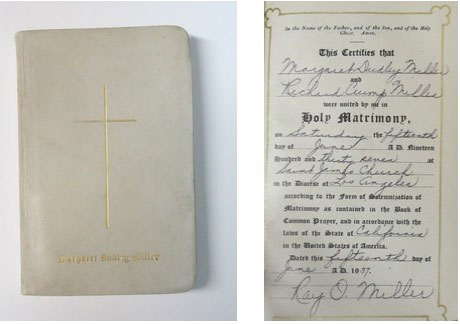 Margaret Dudley Miller
In the Name of the Father, and of the Son, and of the Holy
Ghost. Amen.
This Certifies that
Margaret Dudley Miller
and
Richard Crump Miller
were united by me in
Holy Matrimony,
on Saturday the fifteenth
day of June A.D. Nineteen
Hundred and thirty seven at
Saint James Church
in the Diocese of Los Angeles
according to the Form of Solemnization of
Matrimony as contained in the Book of
Common Prayer, and in accordance with the
laws of the State of California
in the United States of America.
Dated this fifteenth day of
June A.D. 1937.
Ray O. Miller